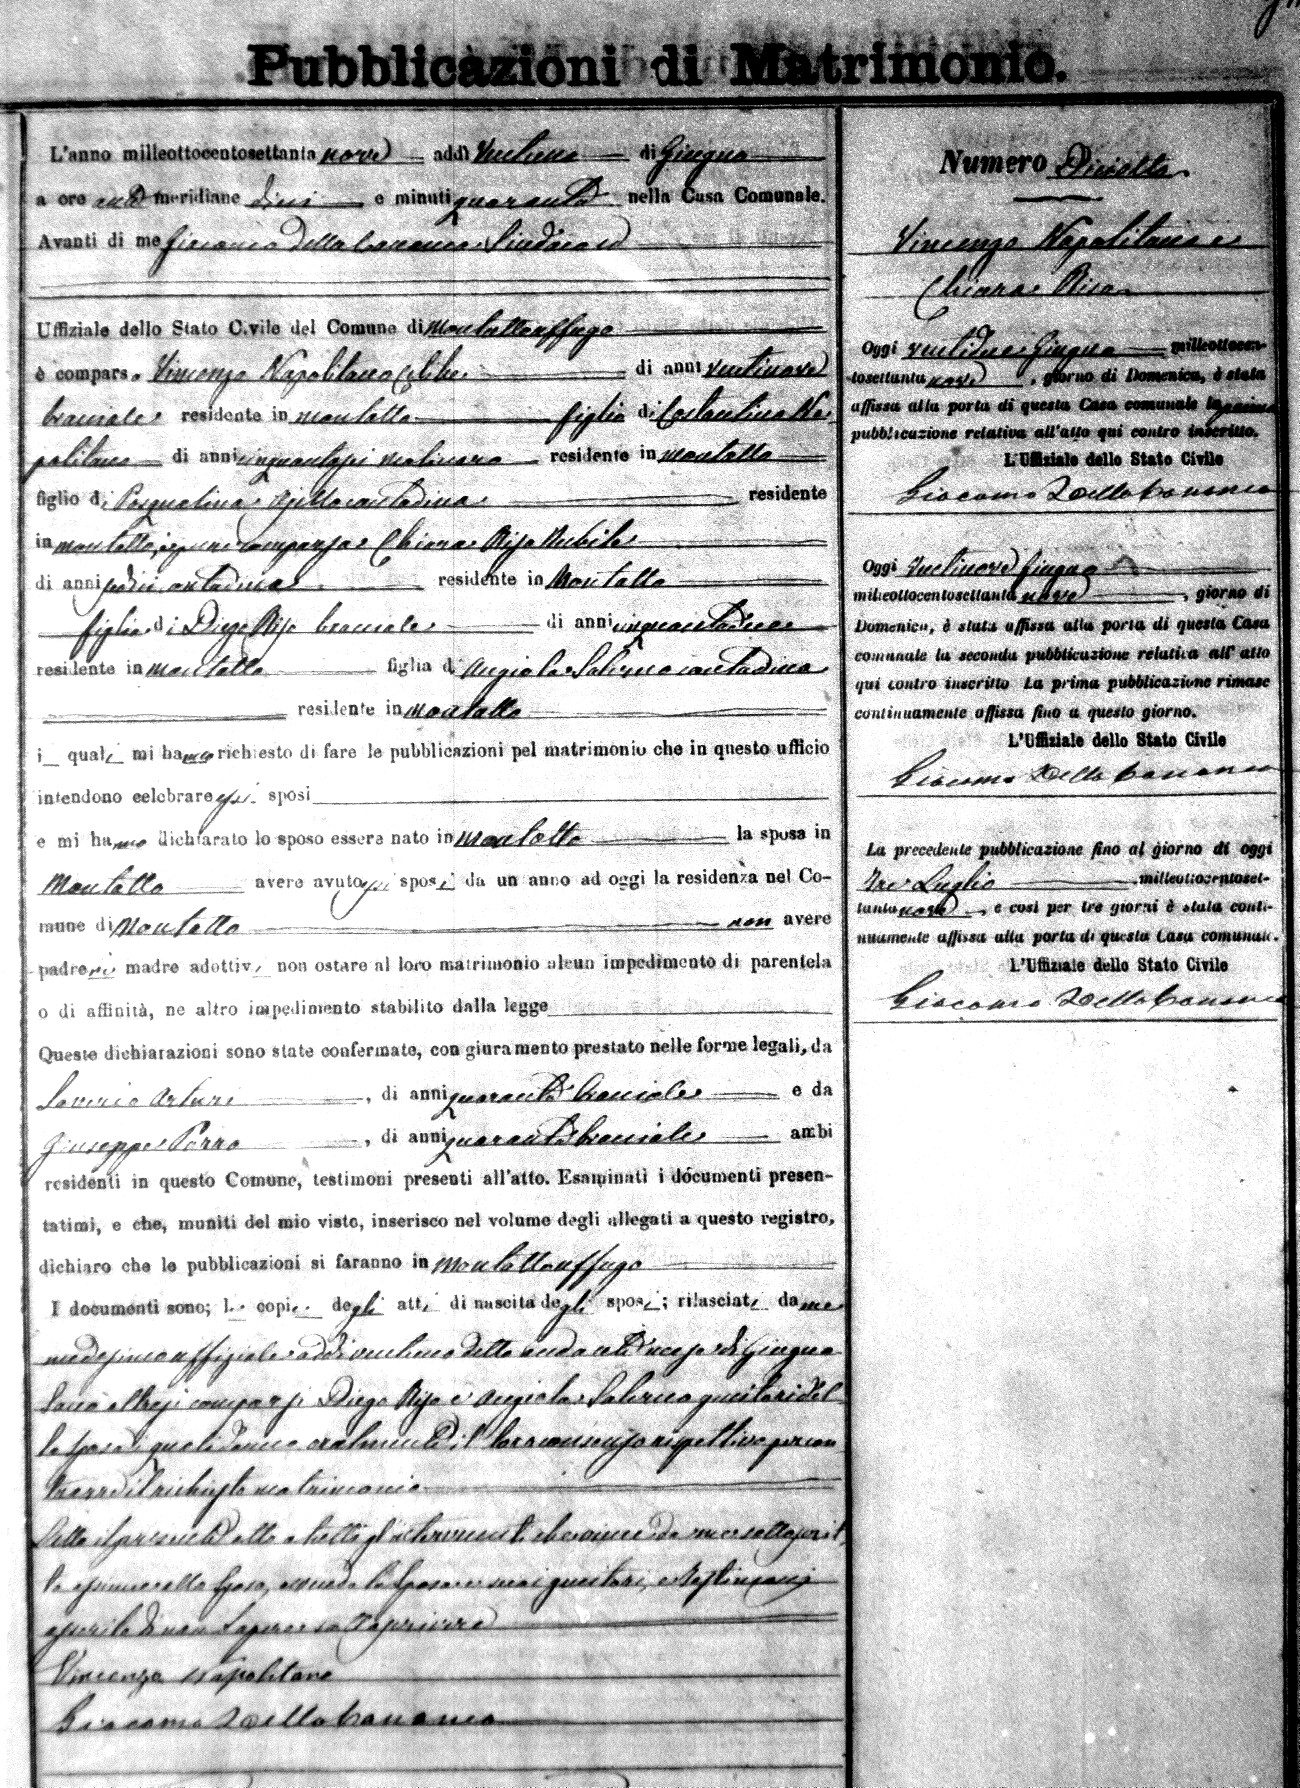 Pubblicazioni di Matrimonio.
L'anno milleottocentosettanta nove addì ventuno di Giugno
a ore anti meridiane dieci e minuti quaranta nella Casa Comunale.
Avanti di me Giacomo Della Cananea Sindaco
Uffiziale dello Stato Civile del Comune di Montaltouffugo
è compars o Vincenzo Napolitano Celibe di anni ventinove
bracciale residente in Montalto figlio di Costantino Na
politano di anni cinquantasei molinaro residente in Montalto
figlio di Pasqualina contadina residente
in Montalto, è pure comparsa Chiara Risa Nubile
di anni contadina residente in Montalto
figlia di Diego Risa bracciale di anni cinquantadue
residente in Montalto figlia di Angiola Salerno contadina
residente in Montalto
i quali mi hanno richiesto di fare le pubblicazioni pel matrimonio che in questo ufficio
intendono celebrare essi sposi
e mi hanno dichiarato lo sposo essere nato in Montalto la sposa in
Montalto avere avuto essi sposi da un anno ad oggi la residenza nel Co-
mune di Montalto non avere
padre nè madre adottivi non ostare al loro matrimonio alcun impedimento di parentela
o di affinità, ne altro impedimento stabilito dalla legge
Queste dichiarazioni sono state confermate, con giuramento prestato nelle forme legali, da
Saverio Arturi, di anni quaranta bracciale e da
Giuseppe Porro, di anni quaranta bracciale ambi
residenti in questo Comune, testimoni presenti all'atto. Esaminati i documenti presen-
tatimi, e che, muniti del mio visto, inserisco nel volume degli allegati a questo registro,
dichiaro che le pubblicazioni si faranno in Montaltouffugo
I documenti sono; le copie degli atti di nascita degli sposi; rilasciate da me
medesimo uffiziale addi ventuno detto mese di Giugno
Sono altresi comparsi Diego Risa e Angiola Salerno genitori del
la sposa i quali danno oralmente il loro consenso rispettivo per con
trarre il richiesto matrimonio
Letto il presente atto a tutti gl'intervenuti viene da me sottoscrit
to e pure dallo sposo, avendo la sposa suoi genitori, e Testimoni
asserito di non sapere scrivere
Vincenzo Napolitano
Giacomo Della Cananea
Numero Diciotto
Vincenzo Napolitano e
Chiara Risa
Oggi ventidue Giugno milleottocen-
tosettanta nove, giorno di Domenica, è stata
affissa alla porta di questa Casa comunale la prima
pubblicazione relativa all'atto qui contro inscritto.
L'Uffiziale dello Stato Civile
Giacomo Della Cananea
Oggi ventinove Giugno
milleottocentosettanta nove, giorno di
Domenica, è stata affissa alla porta di questa Casa
comunale la seconda pubblicazione relativa all'atto
qui contro inscritto La prima pubblicazione rimase
continuamente affissa fino a questo giorno.
L'Uffiziale dello Stato Civile
Giacomo Della Cananea
La precedente pubblicazione fino al giorno di oggi
tre Luglio milleottocentoset-
tanta nove, e così per tre giorni è stata conti-
nuamente affissa alla porta di questa Casa comunale.
L'Uffiziale dello Stato Civile
Giacomo Della Cananea